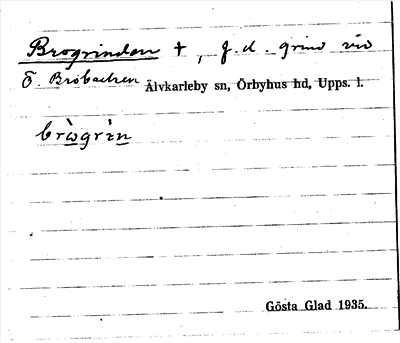 Brogrinden +, f.d. grind vid
Ö. Brobacken Älvkarleby sn, Örbyhus hd, Upps. l.
brògrìn
Gösta Glad 1935.